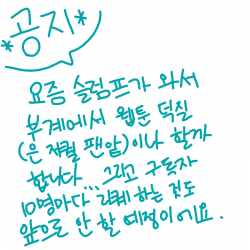 *공지*
요즘 슬럼프가 와서
부계에서 웹툰 덕질
(은 재퀼 팬암)이나 할까
합니다... 그리고 구독자
10명마다 리퀘하는 것도
앞으로 안 할 예정이에요.